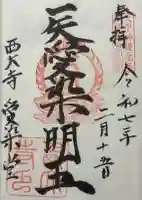 奉拝
令和七年
二月十五日
天愛染明王
西大寺
愛染堂